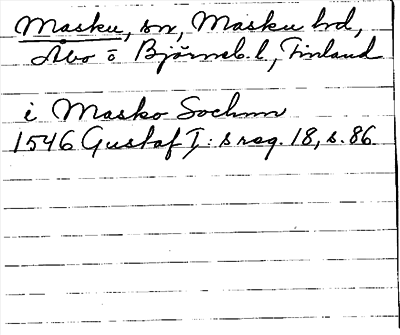 Masku, sn, Masku hd,
Åbo o Björneb. l, Finland
i Masko Sochnn
1546 Gustaf I: s reg. 18, s. 86.